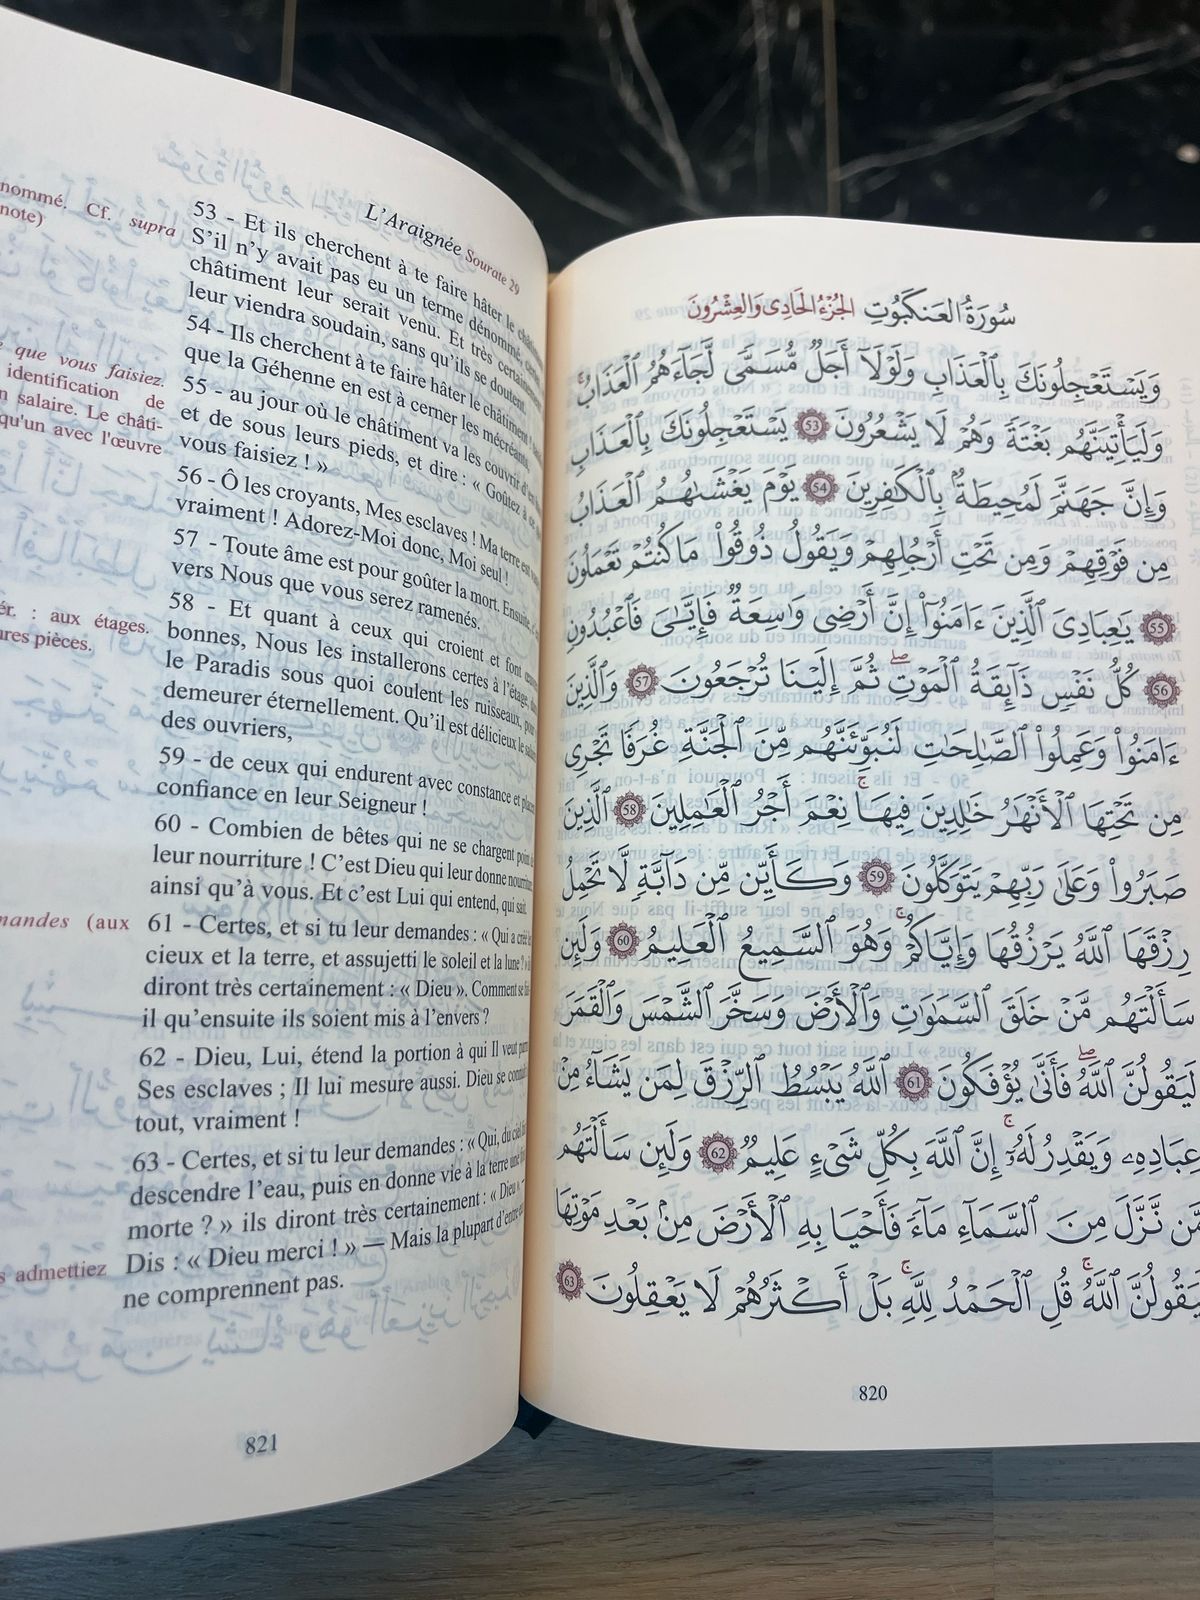 سُورَةُ الْعَنكَبُوتِ الْجُزْءُ الْحَادِي وَالْعِشْرُونَ
وَيَسْتَعْجِلُونَكَ بِالْعَذَابِ وَلَوْلَا أَجَلٌ مُّسَمًّى لَّجَاءَهُمُ الْعَذَابُ
وَلَيَأْتِيَنَّهُم بَغْتَةً وَهُمْ لَا يَشْعُرُونَ 53 يَسْتَعْجِلُونَكَ بِالْعَذَابِ
وَإِنَّ جَهَنَّمَ لَمُحِيطَةٌ بِالْكَٰفِرِينَ 54 يَوْمَ يَغْشَىٰهُمُ الْعَذَابُ
مِن فَوْقِهِمْ وَمِن تَحْتِ أَرْجُلِهِمْ وَيَقُولُ ذُوقُواْ مَا كُنتُمْ تَعْمَلُونَ
55 يَٰعِبَادِيَ الَّذِينَ ءَامَنُواْ إِنَّ أَرْضِي وَٰسِعَةٌ فَإِيَّٰيَ فَاعْبُدُونِ
56 كُلُّ نَفْسٍ ذَآئِقَةُ الْمَوْتِ ۖ ثُمَّ إِلَيْنَا تُرْجَعُونَ 57 وَالَّذِينَ
ءَامَنُواْ وَعَمِلُواْ الصَّٰلِحَٰتِ لَنُبَوِّئَنَّهُم مِّنَ الْجَنَّةِ غُرَفًا تَجْرِي
مِن تَحْتِهَا الْأَنْهَٰرُ خَٰلِدِينَ فِيهَا ۚ نِعْمَ أَجْرُ الْعَٰمِلِينَ 58 الَّذِينَ
صَبَرُواْ وَعَلَىٰ رَبِّهِمْ يَتَوَكَّلُونَ 59 وَكَأَيِّن مِّن دَآبَّةٍ لَّا تَحْمِلُ
رِزْقَهَا اللَّهُ يَرْزُقُهَا وَإِيَّاكُمْ ۚ وَهُوَ السَّمِيعُ الْعَلِيمُ 60 وَلَئِن
سَأَلْتَهُم مَّنْ خَلَقَ السَّمَٰوَٰتِ وَالْأَرْضَ وَسَخَّرَ الشَّمْسَ وَالْقَمَرَ
لَيَقُولُنَّ اللَّهُ ۖ فَأَنَّىٰ يُؤْفَكُونَ 61 اللَّهُ يَبْسُطُ الرِّزْقَ لِمَن يَشَآءُ مِنْ
عِبَادِهِۦ وَيَقْدِرُ لَهُۥٓ ۚ إِنَّ اللَّهَ بِكُلِّ شَيْءٍ عَلِيمٌ 62 وَلَئِن سَأَلْتَهُم
مَّن نَّزَّلَ مِنَ السَّمَآءِ مَآءً فَأَحْيَا بِهِ الْأَرْضَ مِنۢ بَعْدِ مَوْتِهَا
لَيَقُولُنَّ اللَّهُ ۚ قُلِ الْحَمْدُ لِلَّهِ ۚ بَلْ أَكْثَرُهُمْ لَا يَعْقِلُونَ 63
820
L’Araignée Sourate 29
53 - Et ils cherchent à te faire hâter le
S’il n’y avait pas eu un terme dénommé, certes,
châtiment leur serait venu. Et très certainement
leur viendra soudain, sans qu’ils se doutent.
54 - Ils cherchent à te faire hâter le châtiment !
que la Géhenne en est à cerner les mécréants,
55 - au jour où le châtiment va les couvrir d’en
et de sous leurs pieds, et dire : « Goûtez à ce
vous faisiez ! »
56 - Ô les croyants, Mes esclaves ! Ma terre est
vraiment ! Adorez-Moi donc, Moi seul !
57 - Toute âme est pour goûter la mort. Ensuite,
vers Nous que vous serez ramenés.
58 - Et quant à ceux qui croient et font
bonnes, Nous les installerons certes à l’étage,
le Paradis sous quoi coulent les ruisseaux, pour
demeurer éternellement. Qu’il est délicieux le
des ouvriers,
59 - de ceux qui endurent avec constance et
confiance en leur Seigneur !
60 - Combien de bêtes qui ne se chargent point
leur nourriture ! C’est Dieu qui leur donne nourriture
ainsi qu’à vous. Et c’est Lui qui entend, qui sait.
61 - Certes, et si tu leur demandes : « Qui a créé
cieux et la terre, et assujetti le soleil et la lune ? »
diront très certainement : « Dieu ». Comment se
il qu’ensuite ils soient mis à l’envers ?
62 - Dieu, Lui, étend la portion à qui Il veut
Ses esclaves ; Il lui mesure aussi. Dieu se
tout, vraiment !
63 - Certes, et si tu leur demandes : « Qui, du ciel,
descendre l’eau, puis en donne vie à la terre une
morte ? » ils diront très certainement : « Dieu ». —
Dis : « Dieu merci ! » — Mais la plupart d’entre
ne comprennent pas.
nommé. Cf. supra
note)
que vous faisiez.
identification de
salaire. Le châti-
qu'un avec l'œuvre
: aux étages.
pièces.
(aux
admettiez
821